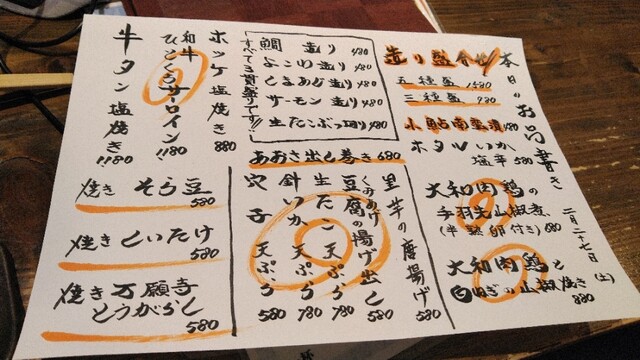 本日のお品書き
二月二十七日(土)
造り盛合せ
五種盛 1580
三種盛 980
小鮎南蛮漬 480
ホタルいか
塩辛 580
大和肉鶏の
手羽先山椒煮
(半熟卵付き) 680
大和肉鶏と
白ねぎの山椒焼き
880
鯛 造り 480
よこわ 造り 480
しまあじ 造り 480
サーモン 造り 480
生たこぶつ切り 480
すべて一貫盛りです!!
ホッケ塩焼き 880
和牛
ひとくちサーロイン
1180
牛タン塩焼き!! 1180
あおさ出し巻き 680
里芋の唐揚げ 580
くみあげ
豆腐の揚げ出し 580
生たこ 天ぷら 780
針いか 天ぷら 780
穴子 天ぷら 580
焼き そら豆
580
焼き しいたけ
580
焼き 万願寺
とうがらし
580